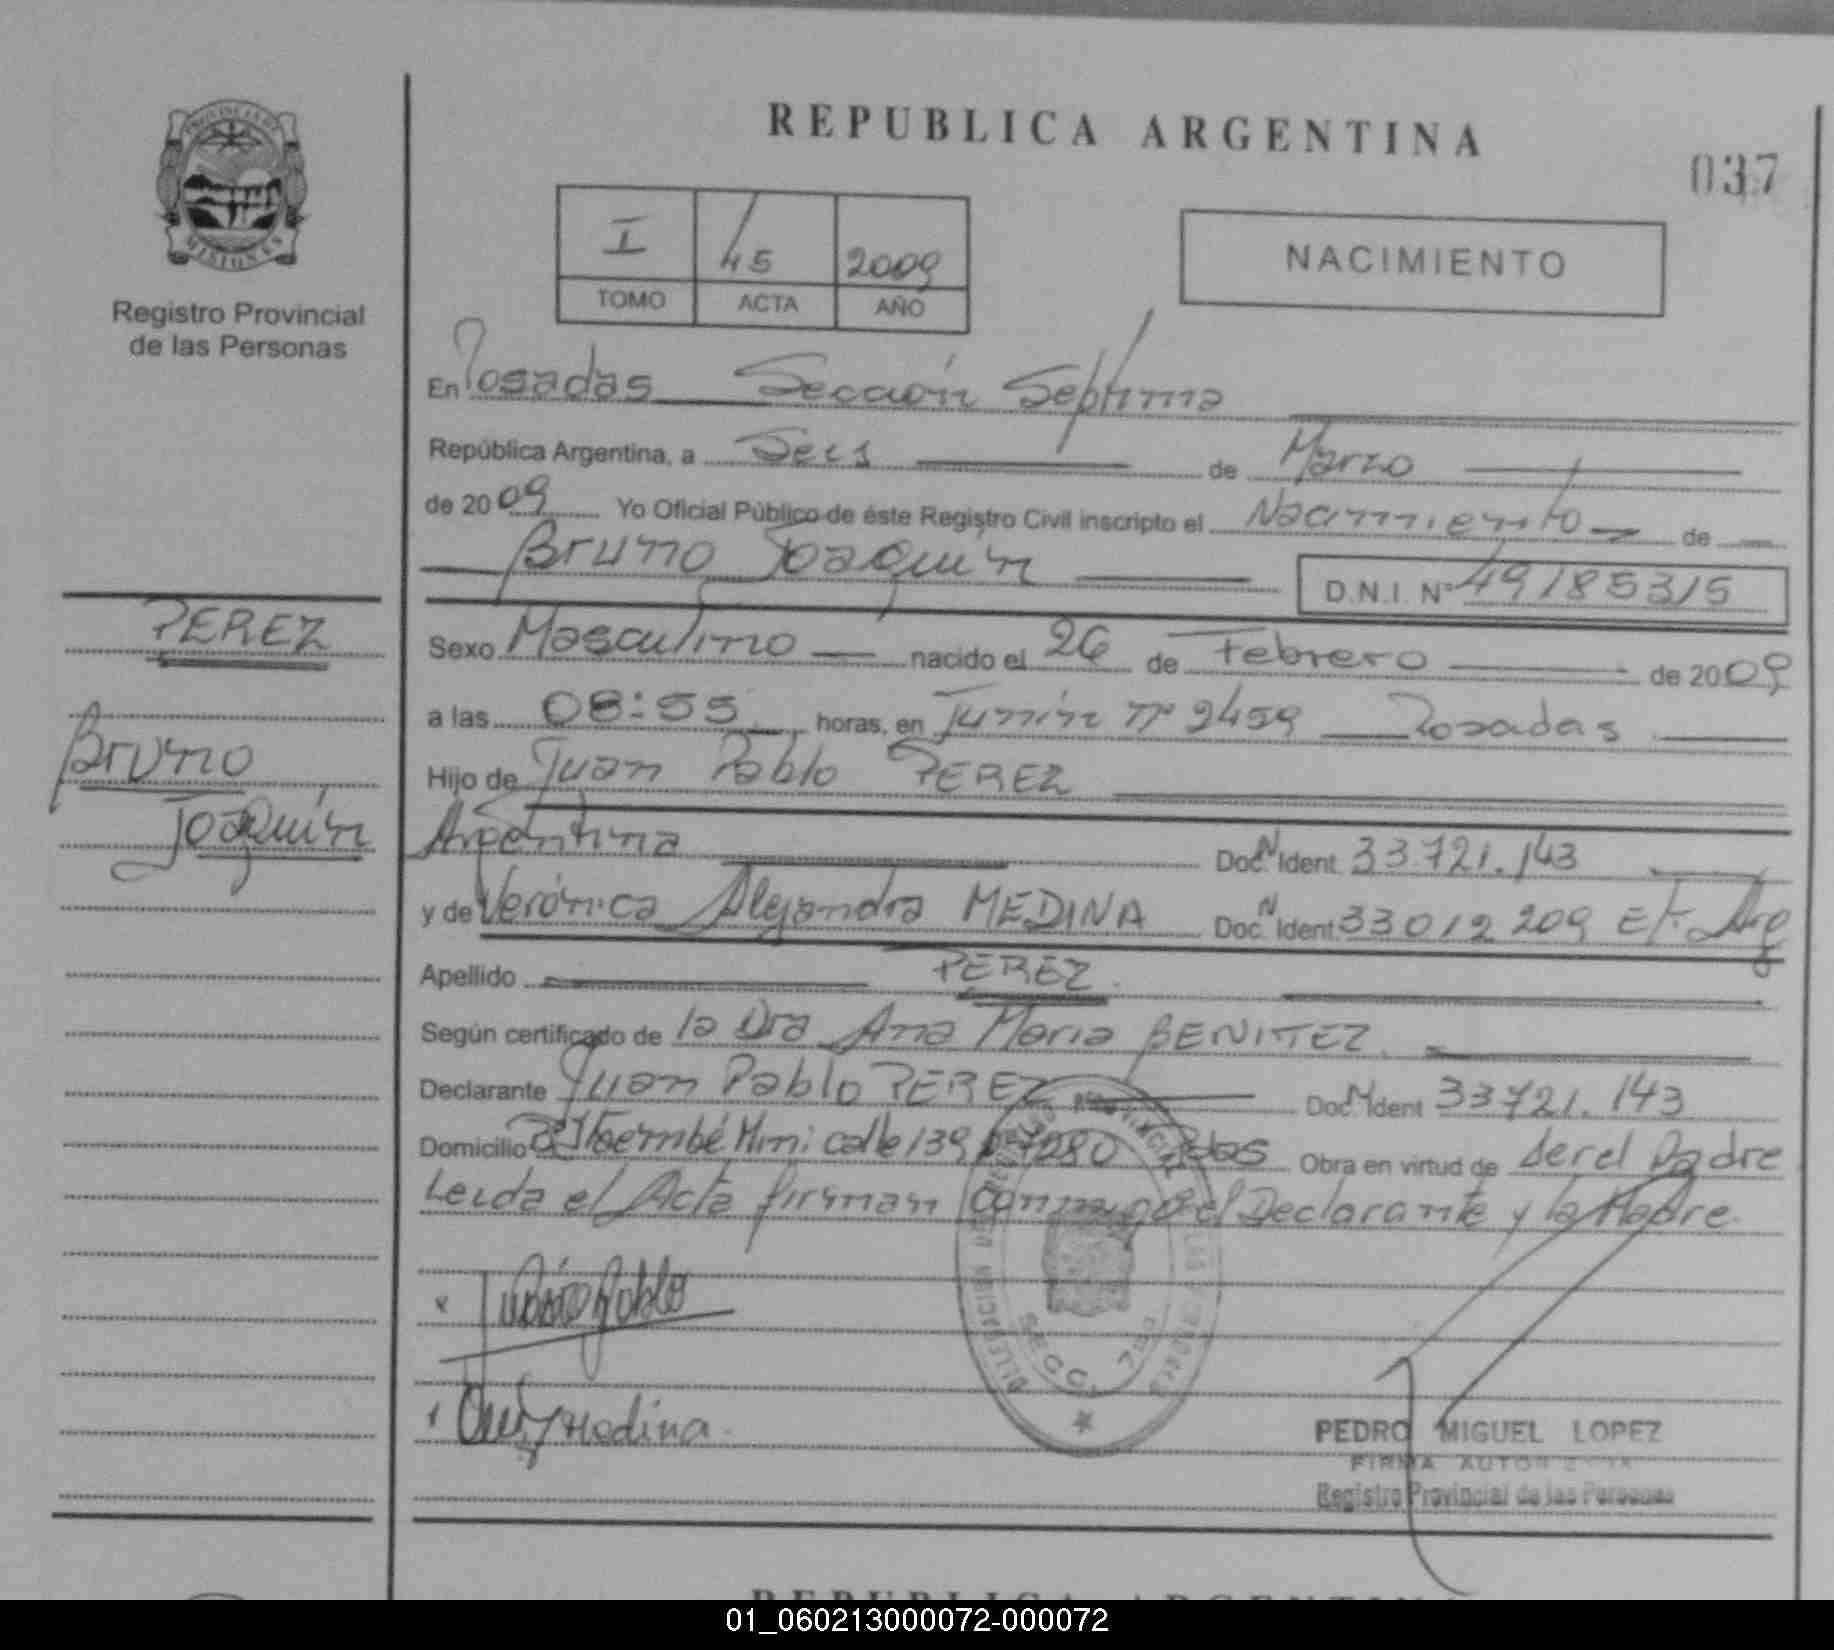 REPUBLICA ARGENTINA
037
PROVINCIA DE
MISIONES
Registro Provincial
de las Personas
I 45 2009
TOMO ACTA AÑO
NACIMIENTO
En Posadas Sección Septima
República Argentina, a Seis de Marzo
de 2009 Yo Oficial Público de éste Registro Civil inscripto el Nacimiento de
Bruno Joaquín D.N.I. Nº 49185315
PEREZ
Bruno
Joaquín
Sexo Masculino nacido el 26 de Febrero de 2009
a las 08:55 horas, en Junín nº 2459 Posadas
Hijo de Juan Pablo PEREZ
Argentina Doc. N Ident. 33.721.143
y de Verónica Alejandra MEDINA Doc. N Ident. 33012209 Arg
Apellido PEREZ
Según certificado de la Dra Ana Maria BENITEZ
Declarante Juan Pablo PEREZ Doc. N Ident 33721.143
Domicilio Itaembé Mini calle 139 7280 Pdas Obra en virtud de ser el Padre
Leida el Acta firman conmigo el Declarante y la Madre.
x Pablo
Medina.
SECC. 7
PEDRO MIGUEL LOPEZ
FIRMA AUTORIZADA
Registro Provincial de las Personas
REPUBLICA ARGENTINA
01_060213000072-000072